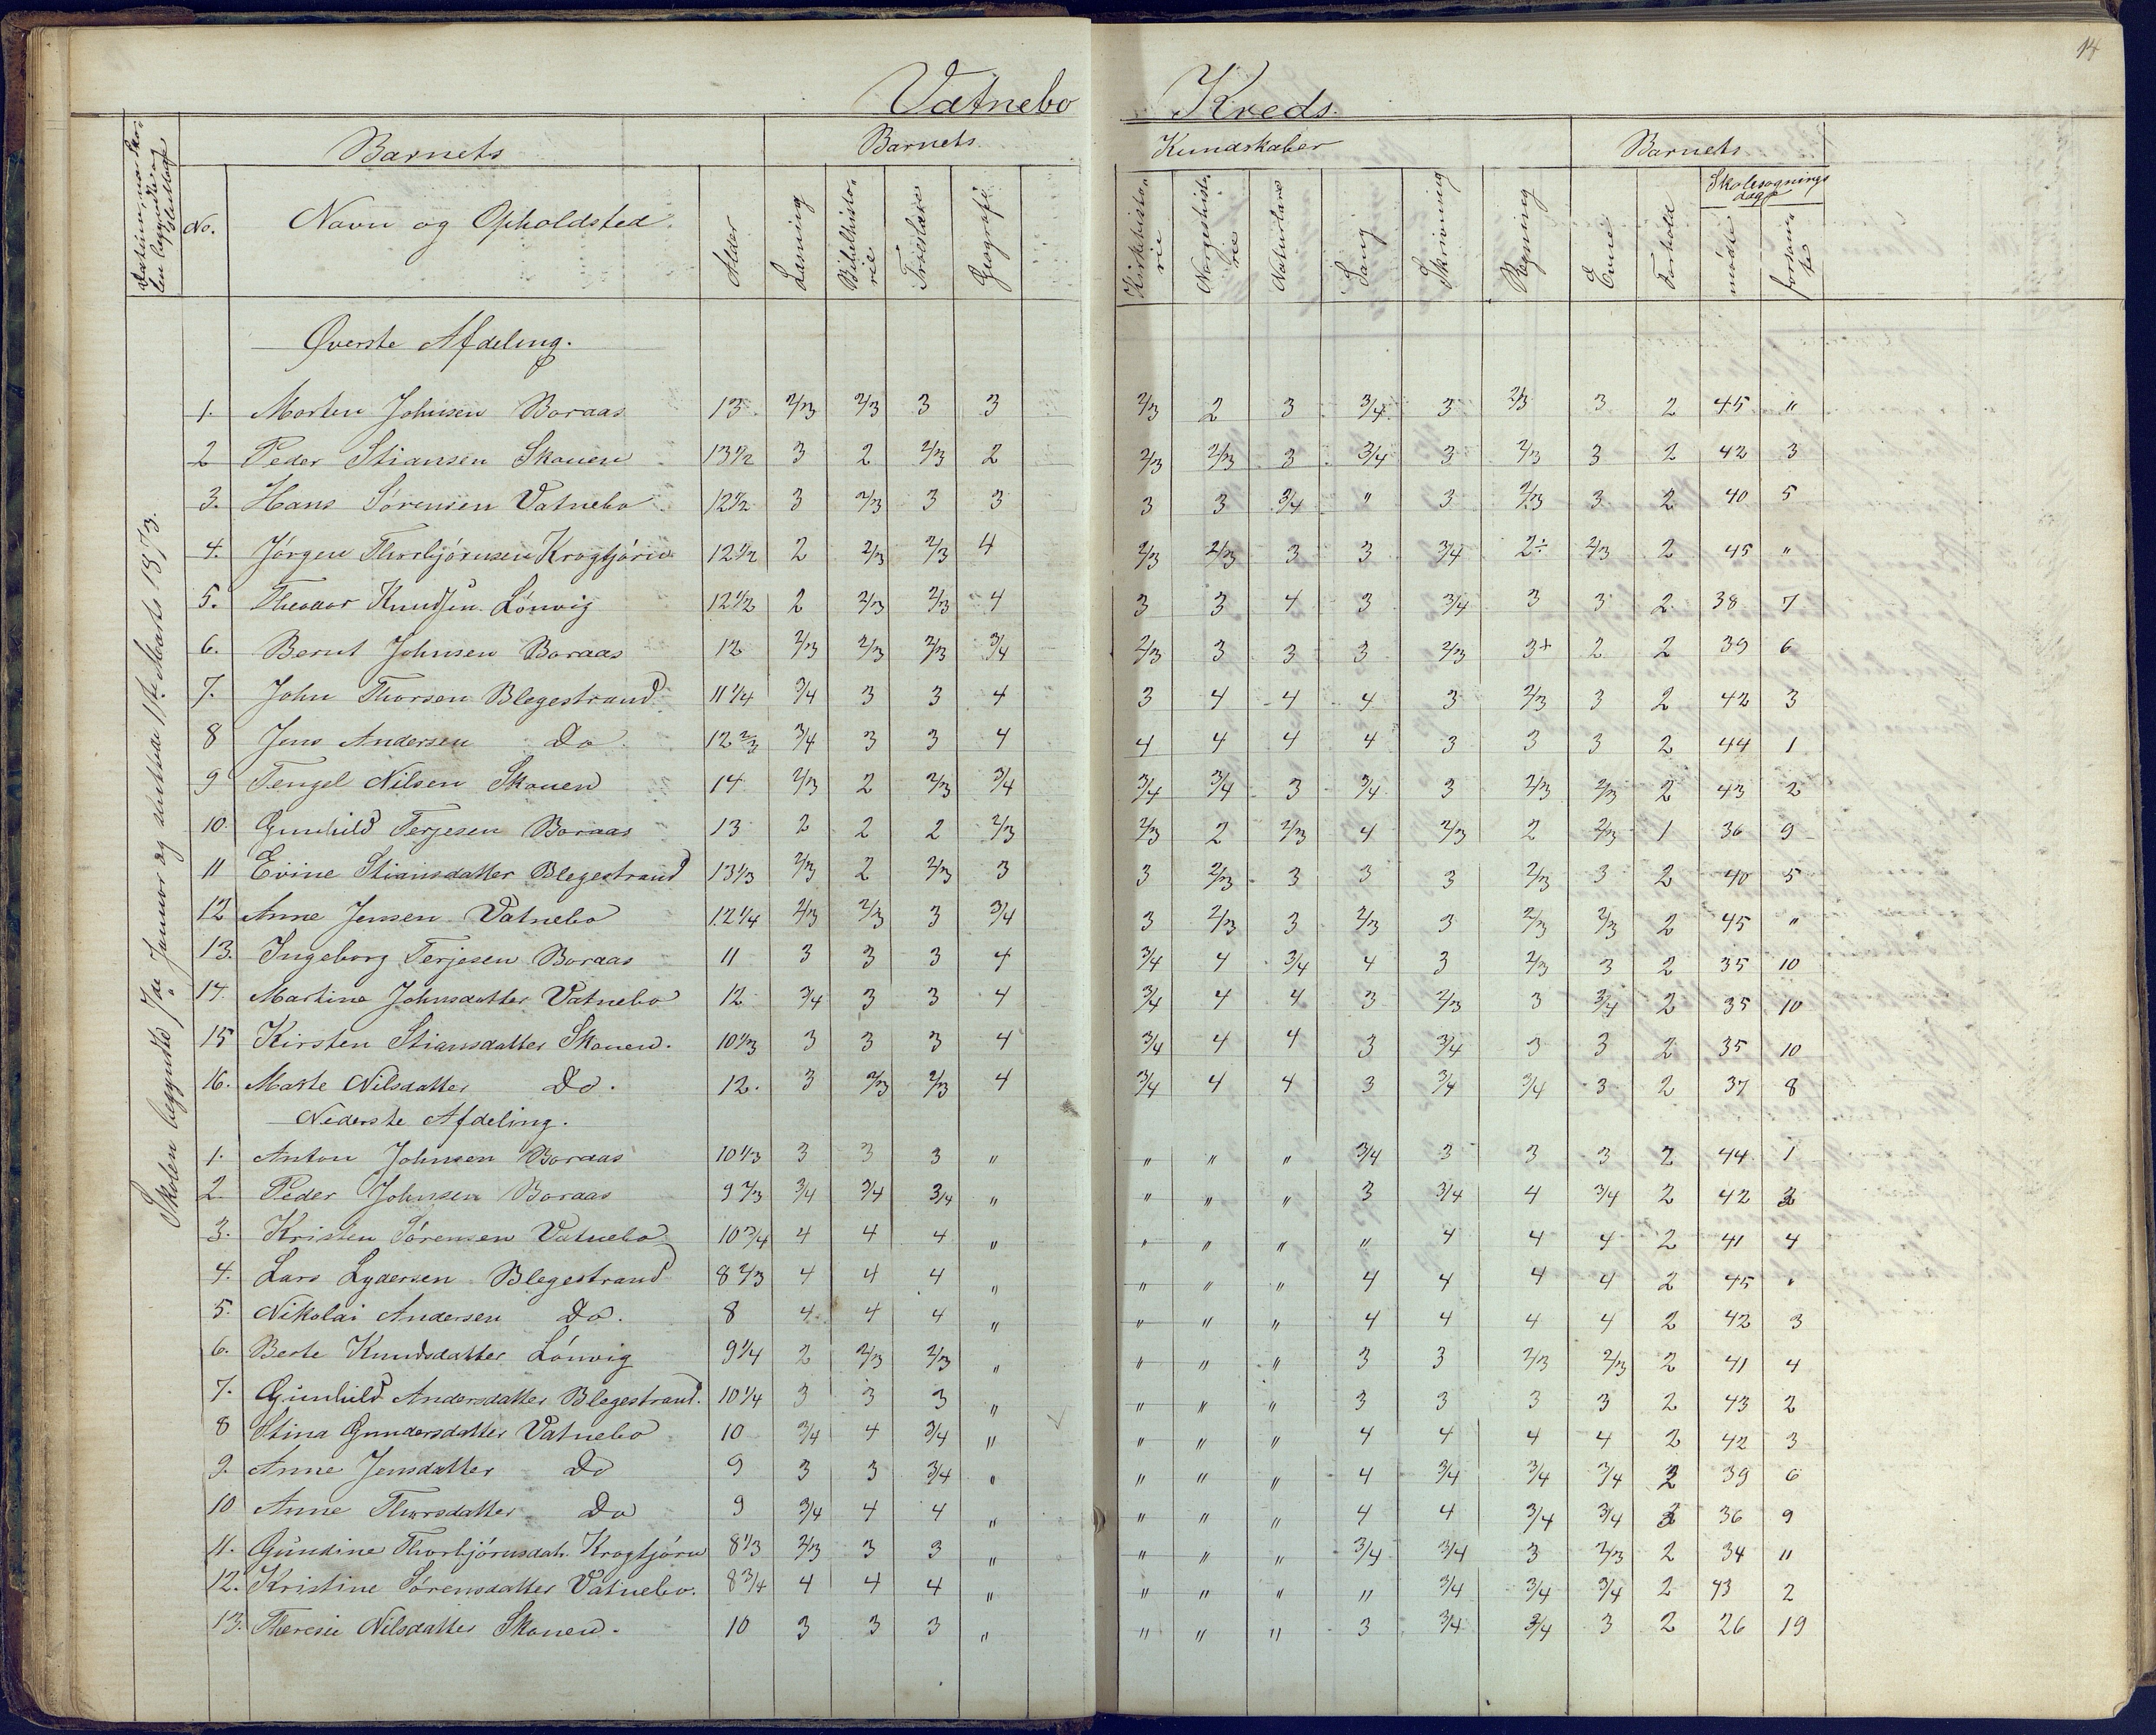 14
Vatnebo Kreds.
Barnets Barnets Kundskaber Barnets
No. Navn og Opholdsted Alder Læsning Bibelhistorie Troeslære Geografi Kirkehistorie Norgeshistorie Naturlære Sang Skrivning Regning Evne Forhold Skolesøgningsdage mødte forsømte
Skolen begyndte 7de Januar og sluttede 11te Marts 1873.
Øverste Afdeling.
1. Morten Johnsen Boraas 13 2/3 2/3 3 3 2/3 2 3 3/4 3 2/3 3 2 45 "
2 Peder Stiansen Skouen 13 1/2 3 2 2/3 2 2/3 2/3 3 3/4 3 2/3 3 2 42 3
3. Hans Sørensen Vatnebo 12 1/2 3 2/3 3 3 3 3 3/4 " 3 2/3 3 2 40 5
4. Jørgen Thorbjørnsen Krogtjørn 12 1/2 2 2/3 2/3 4 2/3 2/3 3 3 3/4 2÷ 2/3 2 45 "
5. Theodor Knudsen Lønvig 12 1/2 2 2/3 2/3 4 3 3 4 3 3/4 3 3 2 38 7
6. Bernt Johnsen Boraas 12 2/3 2/3 2/3 3/4 2/3 3 3 3 2/3 3+ 2 2 39 6
7. John Thorsen Blegestrand 11 1/4 3/4 3 3 4 3 4 4 4 3 2/3 3 2 42 3
8 Jens Andersen Do 12 2/3 3/4 3 3 4 4 4 4 4 3 3 3 2 44 1
9 Tengel Nilsen Skouen 14 2/3 2 2/3 3/4 3/4 3/4 3 3/4 3 2/3 2/3 2 43 2
10. Gunhild Terjesen Boraas 13 2 2 2 2/3 2/3 2 2/3 4 2/3 2 2/3 1 36 9
11 Evine Stiansdatter Blegestrand 13 1/3 2/3 2 2/3 3 3 2/3 3 3 3 2/3 3 2 40 5
12 Anne Jensen Vatnebo 12 1/4 2/3 2/3 3 3/4 3 2/3 3 2/3 3 2/3 2/3 2 45 "
13. Ingeborg Terjesen Boraas 11 3 3 3 4 3/4 4 3/4 4 3 2/3 3 2 35 10
14. Martine Johnsdatter Vatnebo 12 3/4 3 3 4 3/4 4 4 3 2/3 3 3/4 2 35 10
15 Kirsten Stiansdatter Skouen. 10 1/3 3 3 3 4 3/4 4 4 3 3/4 3 3 2 35 10
16. Marte Nilsdatter Do. 12. 3 2/3 2/3 4 3/4 4 4 3 3/4 3/4 3 2 37 8
Nederste Afdeling.
1. Anton Johnsen Boraas 10 1/3 3 3 3 " " " " 3/4 3 3 3 2 44 1
2. Peder Johnsen Boraas 9 2/3 3/4 3/4 3/4 " " " " 3 3/4 4 3/4 2 42 3
3. Kristen Sørensen Vatnebo 10 3/4 4 4 4 " " " " " 4 4 4 2 41 4
4. Lars Lydersen Blegestrand 8 2/3 4 4 4 " " " " 4 4 4 4 2 45 "
5. Nikolai Andersen Do. 8 4 4 4 " " " " 4 4 4 4 2 42 3
6. Berte Knudsdatter Lønvig 9 1/4 2 2/3 2/3 " " " " 3 3 2/3 2/3 2 41 4
7. Gunhild Andersdatter Blegestrand. 10 1/4 3 3 3 " " " " 3 3 3 3 2 43 2
8 Stina Gundersdatter Vatnebo 10 3/4 4 3/4 " " " " 4 4 4 4 2 42 3
9. Anne Jensdatter Do 9 3 3 3/4 " " " " 4 3/4 3/4 3/4 2 39 6
10 Anne Thorsdatter Do 9 3/4 4 4 " " " " 4 4 3/4 3/4 2 36 9
11. Gundine Thorbjørnsdatt. Krogtjørn 8 1/3 2/3 3 3 " " " " 3/4 3/4 3 2/3 2 34 11
12. Kristine Sørensdatter Vatnebo. 8 3/4 4 4 4 " " " " " 3/4 3/4 3/4 2 43 2
13. Theresie Nilsdatter Skouen. 10 3 3 3 " " " " 3 3/4 3/4 3 2 26 19